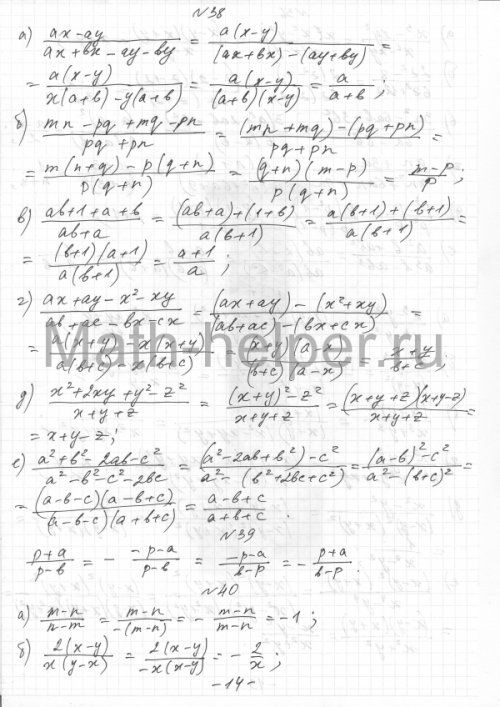 №38
а) (ax-ay)/(ax+bx-ay-by) = a(x-y)/((ax+bx)-(ay+by)) =
= a(x-y)/(x(a+b)-y(a+b)) = a(x-y)/((a+b)(x-y)) = a/(a+b);
б) (mn-pq+mq-pn)/(pq+pn) = ((mn+mq)-(pq+pn))/(pq+pn) =
= (m(n+q)-p(q+n))/(p(q+n)) = (q+n)(m-p)/(p(q+n)) = (m-p)/p;
в) (ab+1+a+b)/(ab+a) = ((ab+a)+(1+b))/(a(b+1)) = (a(b+1)+(b+1))/(a(b+1)) =
= (b+1)(a+1)/(a(b+1)) = (a+1)/a;
г) (ax+ay-x²-xy)/(ab+ac-bx-cx) = ((ax+ay)-(x²+xy))/((ab+ac)-(bx+cx)) =
= (a(x+y)-x(x+y))/(a(b+c)-x(b+c)) = (x+y)(a-x)/((b+c)(a-x)) = (x+y)/(b+c);
Math-helper.ru
д) (x²+2xy+y²-z²)/(x+y+z) = ((x+y)²-z²)/(x+y+z) = (x+y+z)(x+y-z)/(x+y+z) =
= x+y-z;
е) (a²+b²-2ab-c²)/(a²-b²-c²-2bc) = ((a²-2ab+b²)-c²)/(a²-(b²+2bc+c²)) = ((a-b)²-c²)/(a²-(b+c)²) =
= (a-b-c)(a-b+c)/((a-b-c)(a+b+c)) = (a-b+c)/(a+b+c).
№39
(p+a)/(p-b) = -(-p-a)/(p-b) = (-p-a)/(b-p) = -(p+a)/(b-p).
№40
а) (m-n)/(n-m) = (m-n)/(-(m-n)) = -(m-n)/(m-n) = -1;
б) 2(x-y)/(x(y-x)) = 2(x-y)/(-x(x-y)) = -2/x;
-14-